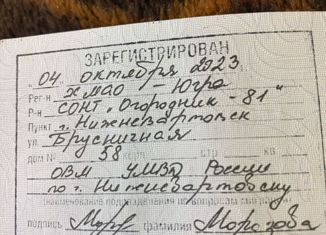 ЗАРЕГИСТРИРОВАН
"04" октября 2023
Рег-н ХМАО - Югра
Р-н СОНТ "Огородник - 81"
Пункт г. Нижневартовск
ул. Брусничная
дом № 58 корп. стр. кв.
ОВМ УМВД России
по г. Нижневартовску
(наименование подразделения по вопросам миграции)
подпись фамилия Морозова